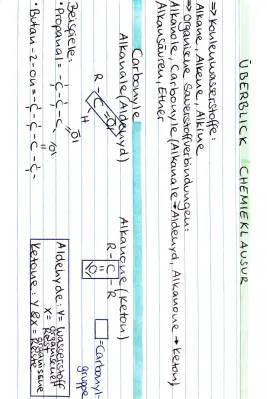 ÜBERBLICK CHEMIEKLAUSUR
⇒ Kohlenwasserstoffe:
Alkane, Alkene, Alkine
⇒ organische Sauerstoffverbindungen:
Alkanole, Carbonyle (Alkanale → Aldehyd, Alkanone → Keton)
Alkansäuren, Ether
Carbonyle
Alkanale (Aldehyd)
Alkanone (Keton)
R - C = O
H
R - C - R
O
= Carbonyl-
gruppe
Beispiele:
• Propanal = -C-C-C
O
• Butan-2-on = -C-C-C-C-
O
Aldehyde: Y = Wasserstoff
X = organischer Rest
Ketone: Y & X = organische Reste